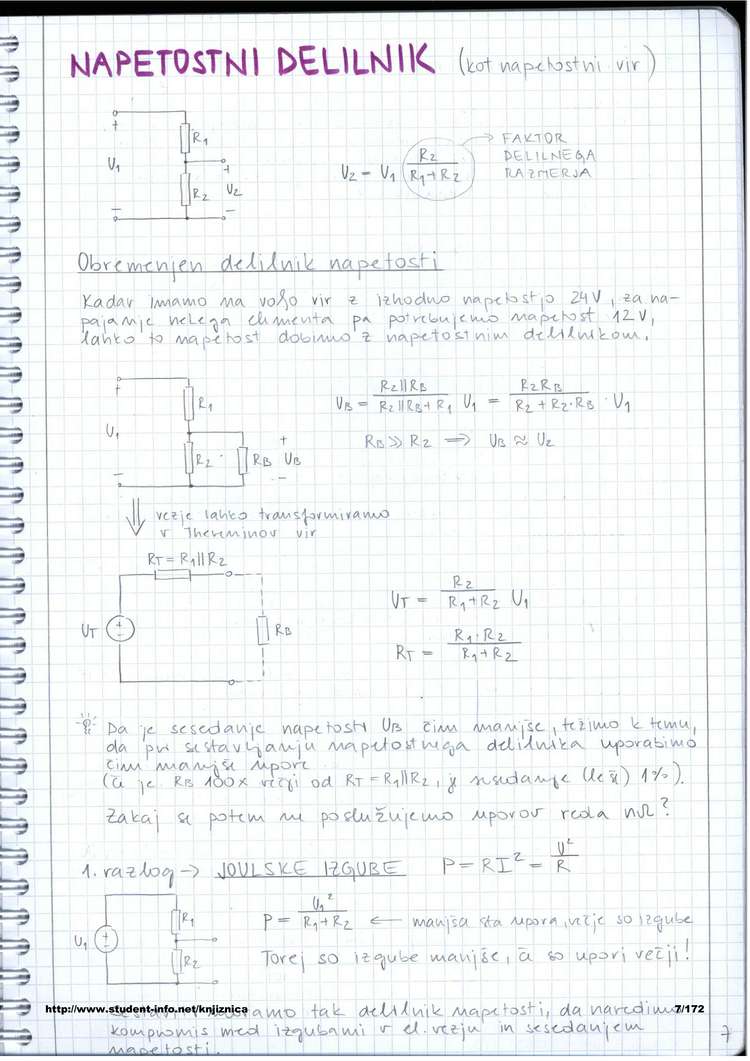 NAPETOSTNI DELILNIK (kot napetostni vir)
+
R1
U1
+
R2 U2
-
-
U2 = U1 R2 / R1+R2 → FAKTOR
DELILNEGA
RAZMERJA
Obremenjen delilnik napetosti
Kadar imamo na voljo vir z izhodno napetostjo 24V, za na-
pajanje nekega elementa pa potrebujemo napetost 12V,
lahko to napetost dobimo z napetostnim delilnikom.
+
R1
U1
R2
RB
+
UB
-
-
UB = R2||RB / R2||RB+R1 U1 = R2RB / R2+R2·RB · U1
RB >> R2 ⟹ UB ≈ U2
⇓ vezje lahko transformiramo
v Theveninov vir
RT = R1||R2
UT
+
-
RB
UT = R2 / R1+R2 U1
RT = R1·R2 / R1+R2
Da je sesedanje napetosti UB čim manjše, težimo k temu,
da pri sestavljanju napetostnega delilnika uporabimo
čim manjše upore
(če je RB 100x večji od RT = R1||R2, je sesedanje (le še) 1%).
Zakaj se potem ne poslužujemo uporov reda nΩ?
1. razlog → JOULSKE IZGUBE P = RI² = U² / R
U1
+
-
R1
R2
P = U1² / R1+R2 ← manjša sta upora, večje so izgube
Torej so izgube manjše, če so upori večji!
http://www.student-info.net/knjiznica
tak delilnik napetosti, da naredimo
7/172
kompromis med izgubami v el. vezju in sesedanjem
napetosti.
7